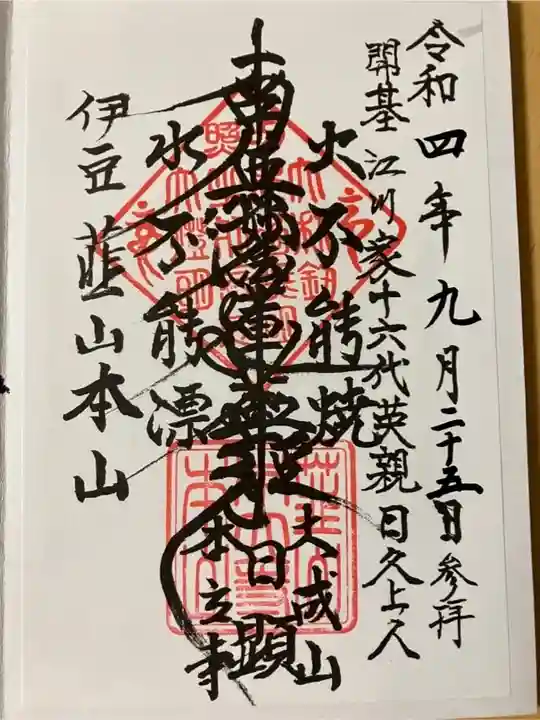 令和四年九月二十五日参拝
開基江川家十六代英親日久上人
火不能焼
大成山
南無妙法蓮華経
日顕
水不能漂
本立寺
伊豆韮山本山